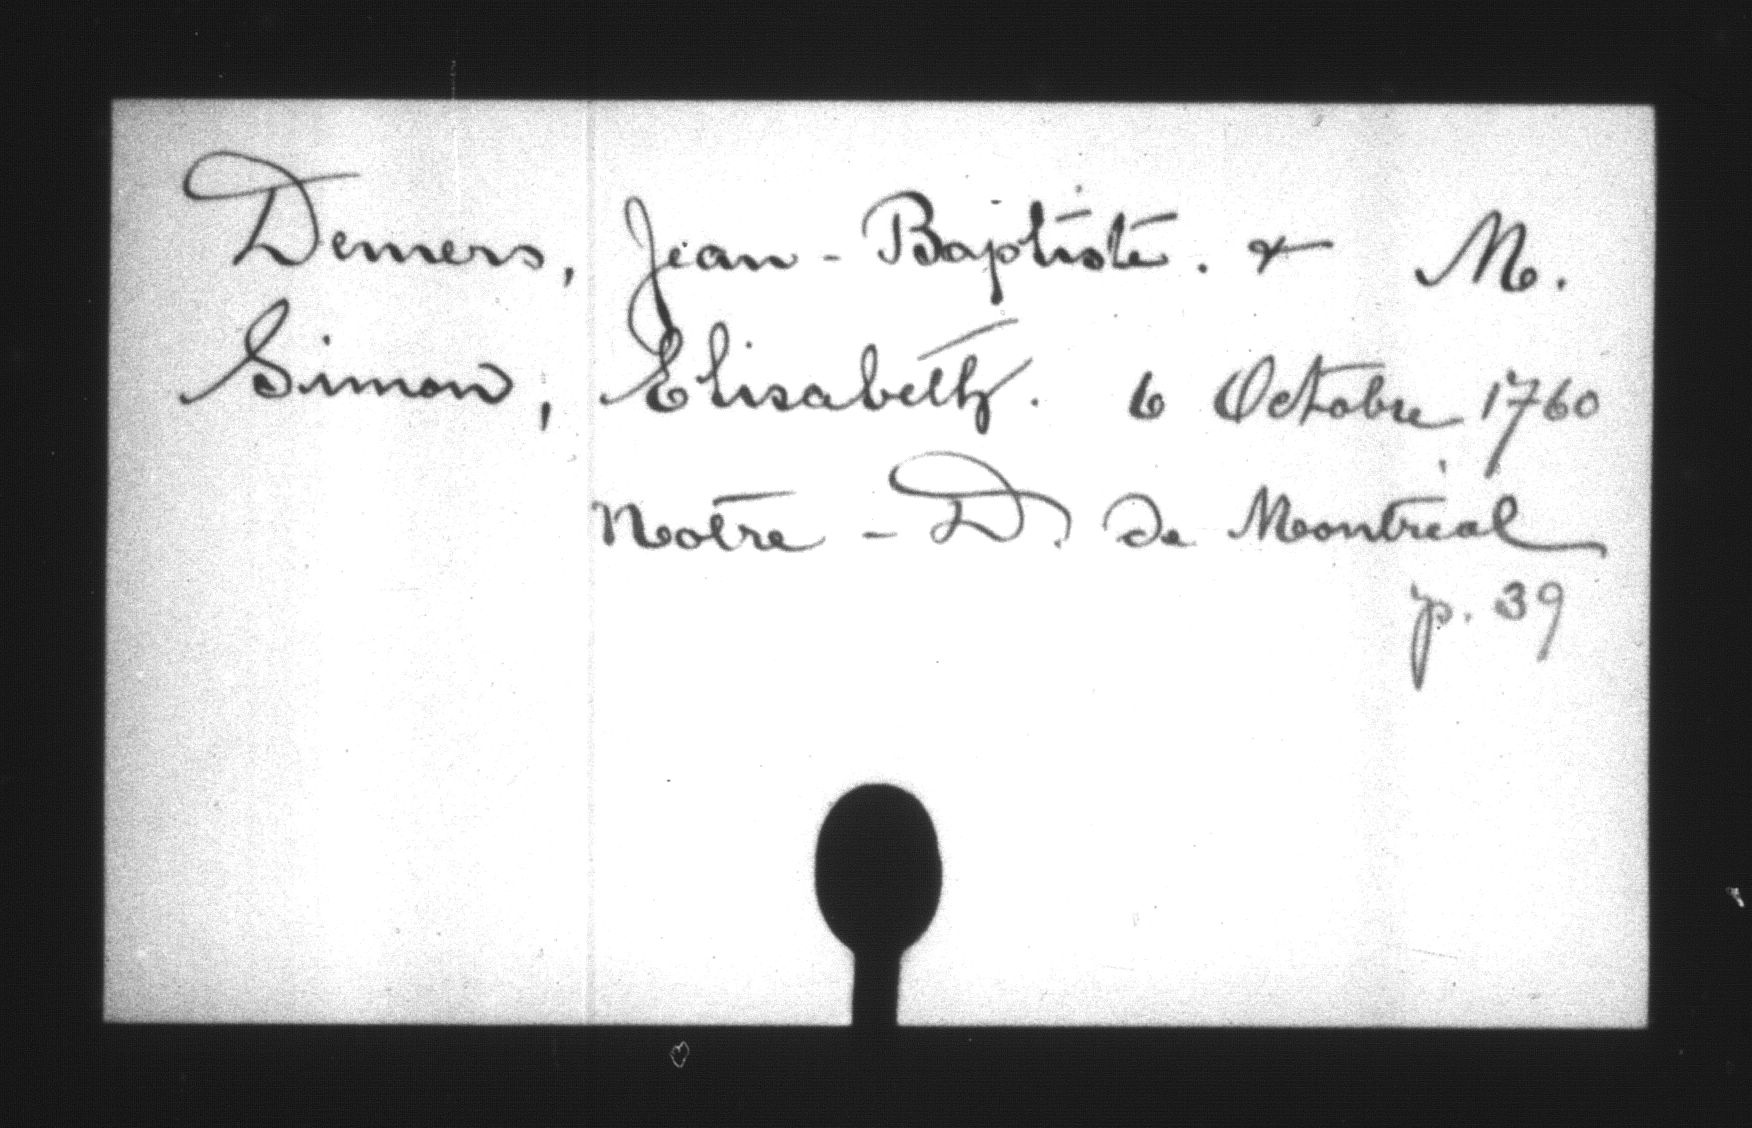 Demers, Jean-Baptiste. & M.
Simon, Elisabeth. 6 Octobre 1760
Notre-D. de Montréal
p. 39